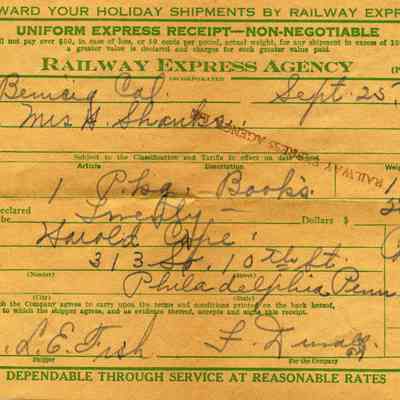 WARD YOUR HOLIDAY SHIPMENTS BY RAILWAY EXPR
UNIFORM EXPRESS RECEIPT—NON-NEGOTIABLE
ll not pay over $50, in case of loss, or 50 cents per pound, actual weight, for any shipment in excess of 10
a greater value is declared and charges for such greater value paid.
RAILWAY EXPRESS AGENCY
INCORPORATED
Benicia Cal. Sept. 25
Mrs H. Shanks.
RAILWAY EXPRESS AGENCY
Subject to the Classification and Tariffs in effect on date
Article Description Weig
1 Pkg. Books.
eclared
be Dollars $
Harold
313 So. 10th St.
(Number) (Street)
Philadelphia Penn
(City) (State)
h the Company agrees to carry upon the terms and conditions printed on the back hereof,
to which the shipper agrees, and as evidence thereof, accepts and signs this receipt.
L. E. Fish F.
Shipper For the Company
DEPENDABLE THROUGH SERVICE AT REASONABLE RATES